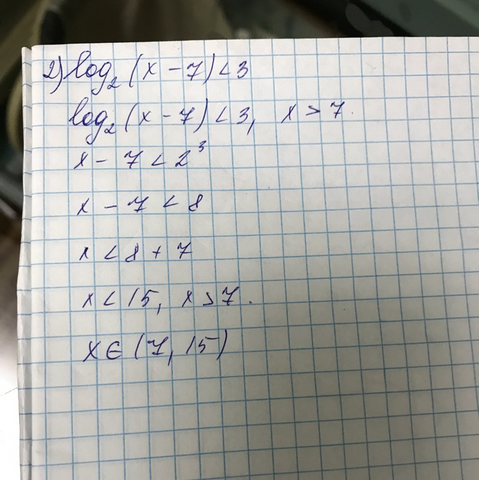 2) log₂ (x - 7) < 3
log₂ (x - 7) < 3, x > 7.
x - 7 < 2³
x - 7 < 8
x < 8 + 7
x < 15, x > 7.
x ∈ (7, 15)